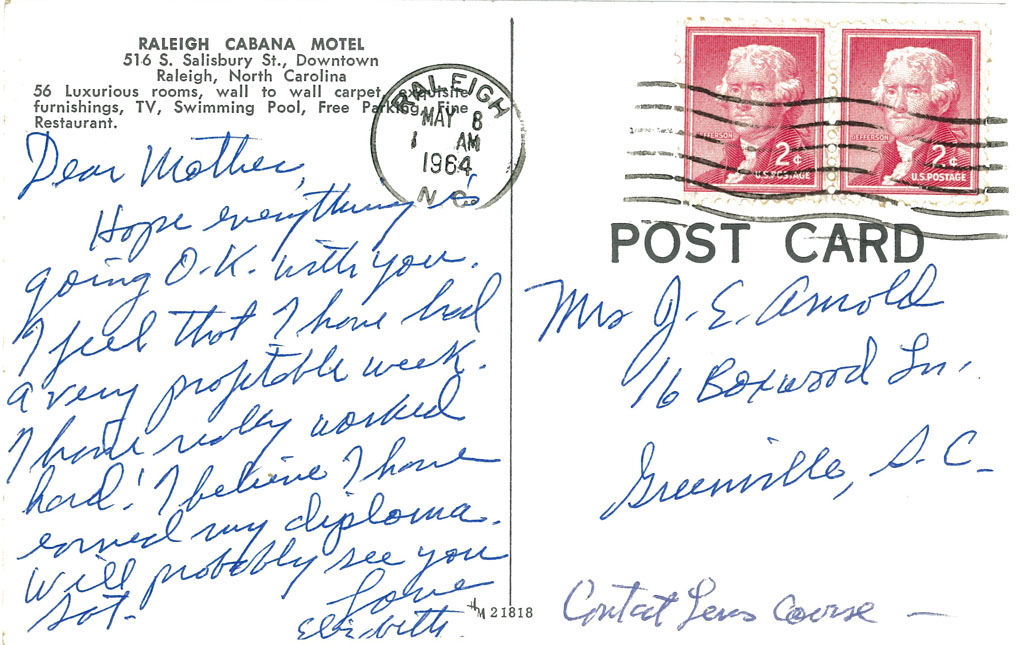 RALEIGH CABANA MOTEL
516 S. Salisbury St., Downtown
Raleigh, North Carolina
56 Luxurious rooms, wall to wall carpet, exquisite
furnishings, TV, Swimming Pool, Free Parking, Fine
Restaurant.
Dear Mother,
Hope everything is
going O-K. with you.
I feel that I have had
a very profitable week.
I have really worked
hard! I believe I have
earned my diploma.
Will probably see you
Sat.
Love
Elizabeth
RALEIGH
MAY 8
1 AM
1964
N.C.
JEFFERSON
2¢
U.S. POSTAGE
JEFFERSON
2¢
U.S. POSTAGE
POST CARD
Mrs J. E. Arnold
16 Boxwood Ln.
Greenville, S. C.
Contact Lens Course —
HM 21818